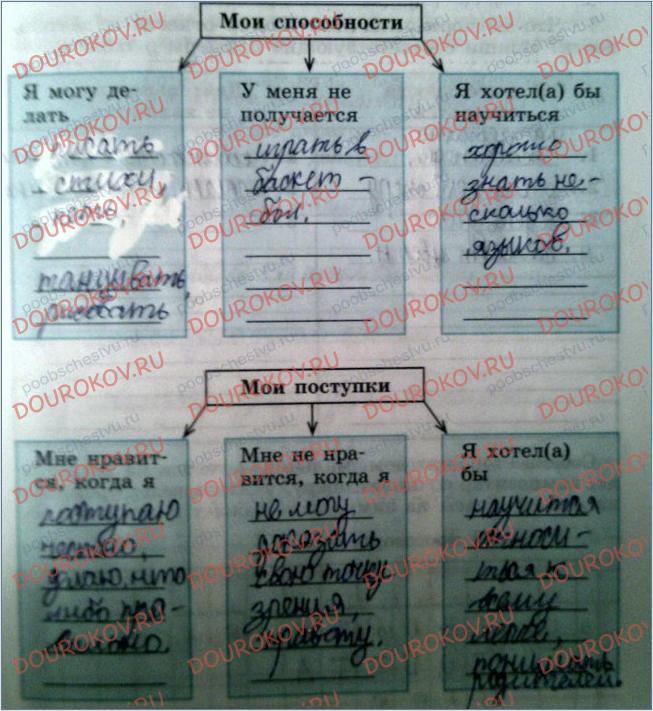 Мои способности
Я могу де-
лать
писать
стихи,
танцевать,
У меня не
получается
играть в
баскет -
бол.
Я хотел(а) бы
научиться
хорошо
знать не-
сколько
языков.
Мои поступки
Мне нравит-
ся, когда я
поступаю
честно,
делаю что
либо пра-
вильно.
Мне не нра-
вится, когда я
не могу
доказать
свою точку
зрения,
Я хотел(а)
бы
научится
относи-
ться к
всему
легче,
понимать
родителей.
DOUROKOV.RU
poobschestvu.ru